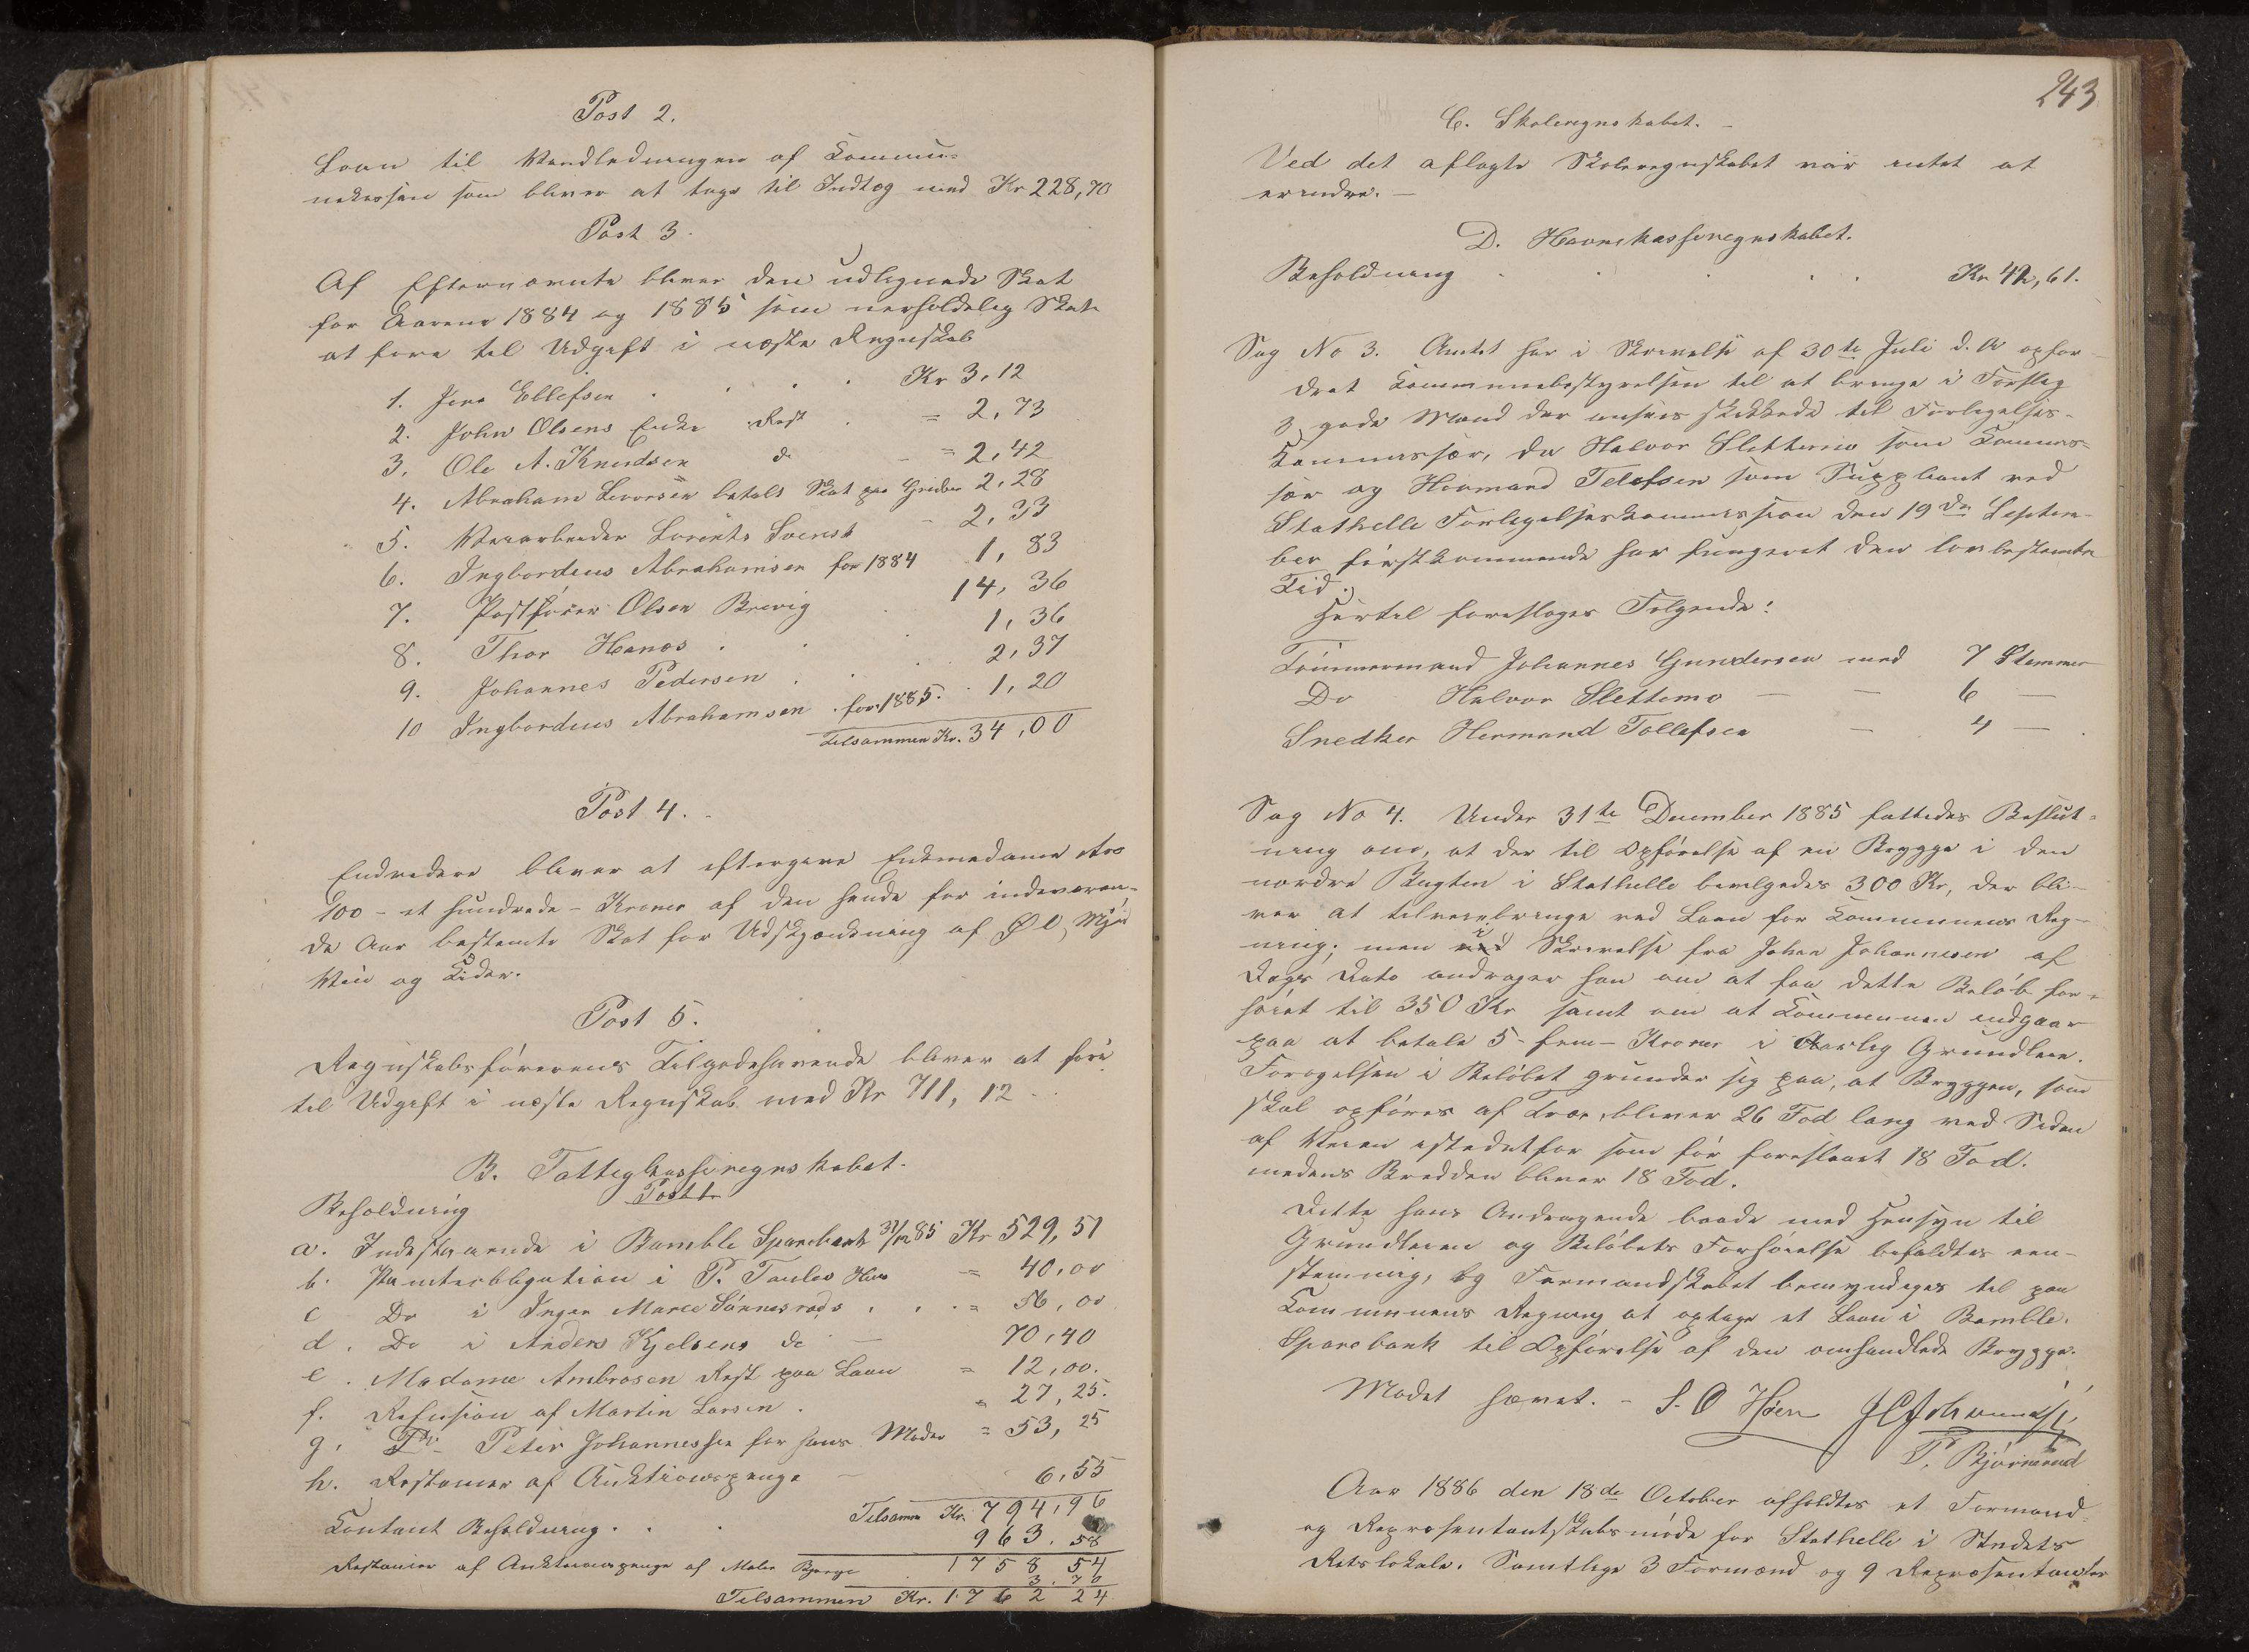 Post 2.
Laan til Vandledningen af Kommu-
nekassen som bliver at tage til Indtæg med Kr 228,70
Post 3.
Af Efternævnte bliver den udlignede Skat
for Aarene 1884 og 1885 som uerholdelig Skat
at føre til Udgift i næste Regnskab
1. Jens Ellefsen . . . . Kr 3,12
2. John Olsens Enke Rest . = 2,73
3. Ole A. Knudsen do - = 2,42
4. Abraham Levorsen betalt Skat paa 2,28
5. Veiarbeider Lorents - 2,33
6. Ingbordius Abrahamsen for 1884 1,83
7. Postfører Olsen Brevig . 14,36
8. Thor Hanos . . . 1,36
9. Johannes Pedersen . . . 2,37
10 Ingbordius Abrahamsen . for 1885. . 1,20
Tilsammen Kr. 34,00
Post 4.
Endvidere bliver at eftergive Enkemadame Aro
100 - et hundrede - Kroner af den hende for indeværen-
de Aar bestemte Skat for Udskjænkning af Øl, Mjød
Vin og Cider.
Post 5.
Regnskabsførerens Tilgodehavende bliver at føre
til Udgift i næste Regnskab med Kr 711,12
B. Fattigkasseregnskabet.
Post 1
Beholdning
a. Indestaaende i Bamble Sparebank 31/12 85 Kr 529,51
b. Panteobligation i P. Hus = 40,00
c Do i Inger Marie Sønnesrøds . . . = 56,00
d. Do i Anders Kjelsens do — 70,40
e. Madame Ambrosen Rest paa Laan = 12,00.
f. Refusion af Martin Larsen . = 27,25.
g. Do Peter Johannessen for hans Moder = 53,25
h. Restancer af Auktionspenge — 6,55
Tilsamm Kr. 794,96
Contant Beholdning . . . 963.58
1758 54
Restancer af Auktionspenge af Maler Bjerge . 3.70
Tilsammen Kr. 1762 24
243
C. Skoleregnskabet. -
Ved det aflagte Skoleregnskabet var intet at
erindre. —
D. Havnekasseregnskabet.
Beholdning . . . . . Kr 42,61.
Sag No 3. Amtet har i Skrivelse af 30te Juli d. A opfor-
dret Kommunebestyrelsen til at bringe i Forslag
3 gode Mænd der ansees skikkede til Forligelses-
Kommissær, da Halvor Slettemo som Kommis-
sær og Hermand Tollefsen som Suppleant ved
Stathelle Forligelseskommission den 19de Septem-
ber førstkommende har fungeret den lovbestemte
Tid.
Hertil foreslages Følgende:
Tømmermand Johannes Gundersen med 7 Stemmer
Do Halvor Slettemo — — 6 —
Snedker Hermand Tollefsen — 4 —
Sag No 4. Under 31te December 1885 fattedes Beslut-
ning om, at der til Opførelse af en Brygge i den
nordre Bugten i Stathelle bevilgedes 300 Kr, der bli-
ver at tilveiebringe ved Laan for Kommunens Reg-
ning; men i Skrivelse fra Johan Johannesen af
Dags Dato andrager han om at faa dette Beløb for-
høiet til 350 Kr samt om at Kommunen indgaar
paa at betale 5 - fem - Kroner i Aarlig Grundleie.
Forøgelsen i Beløbet grunder sig paa, at Bryggen, som
skal opføres af Træ, bliver 26 Fod lang ved Siden
af Veien istedetfor som før foreslaaet 18 Fod.
medens Bredden bliver 18 Fod.
Dette hans Andragende baade med Hensyn til
Grundleien og Beløbets Forhøielse bifaldtes een-
stemmig, og Formandskabet bemyndiges til paa
Kommunens Regning at optage et Laan i Bamble
Sparebank til Opførelse af den omhandlede Brygge.
Mødet hævet. - S. O Høen
P. Bjørnerud
Aar 1886 den 18de October afholdtes et Formand-
og Repræsentantskabsmøde for Stathelle i Stedets
Retslokale. Samtlige 3 Formænd og 9 Repræsentanter